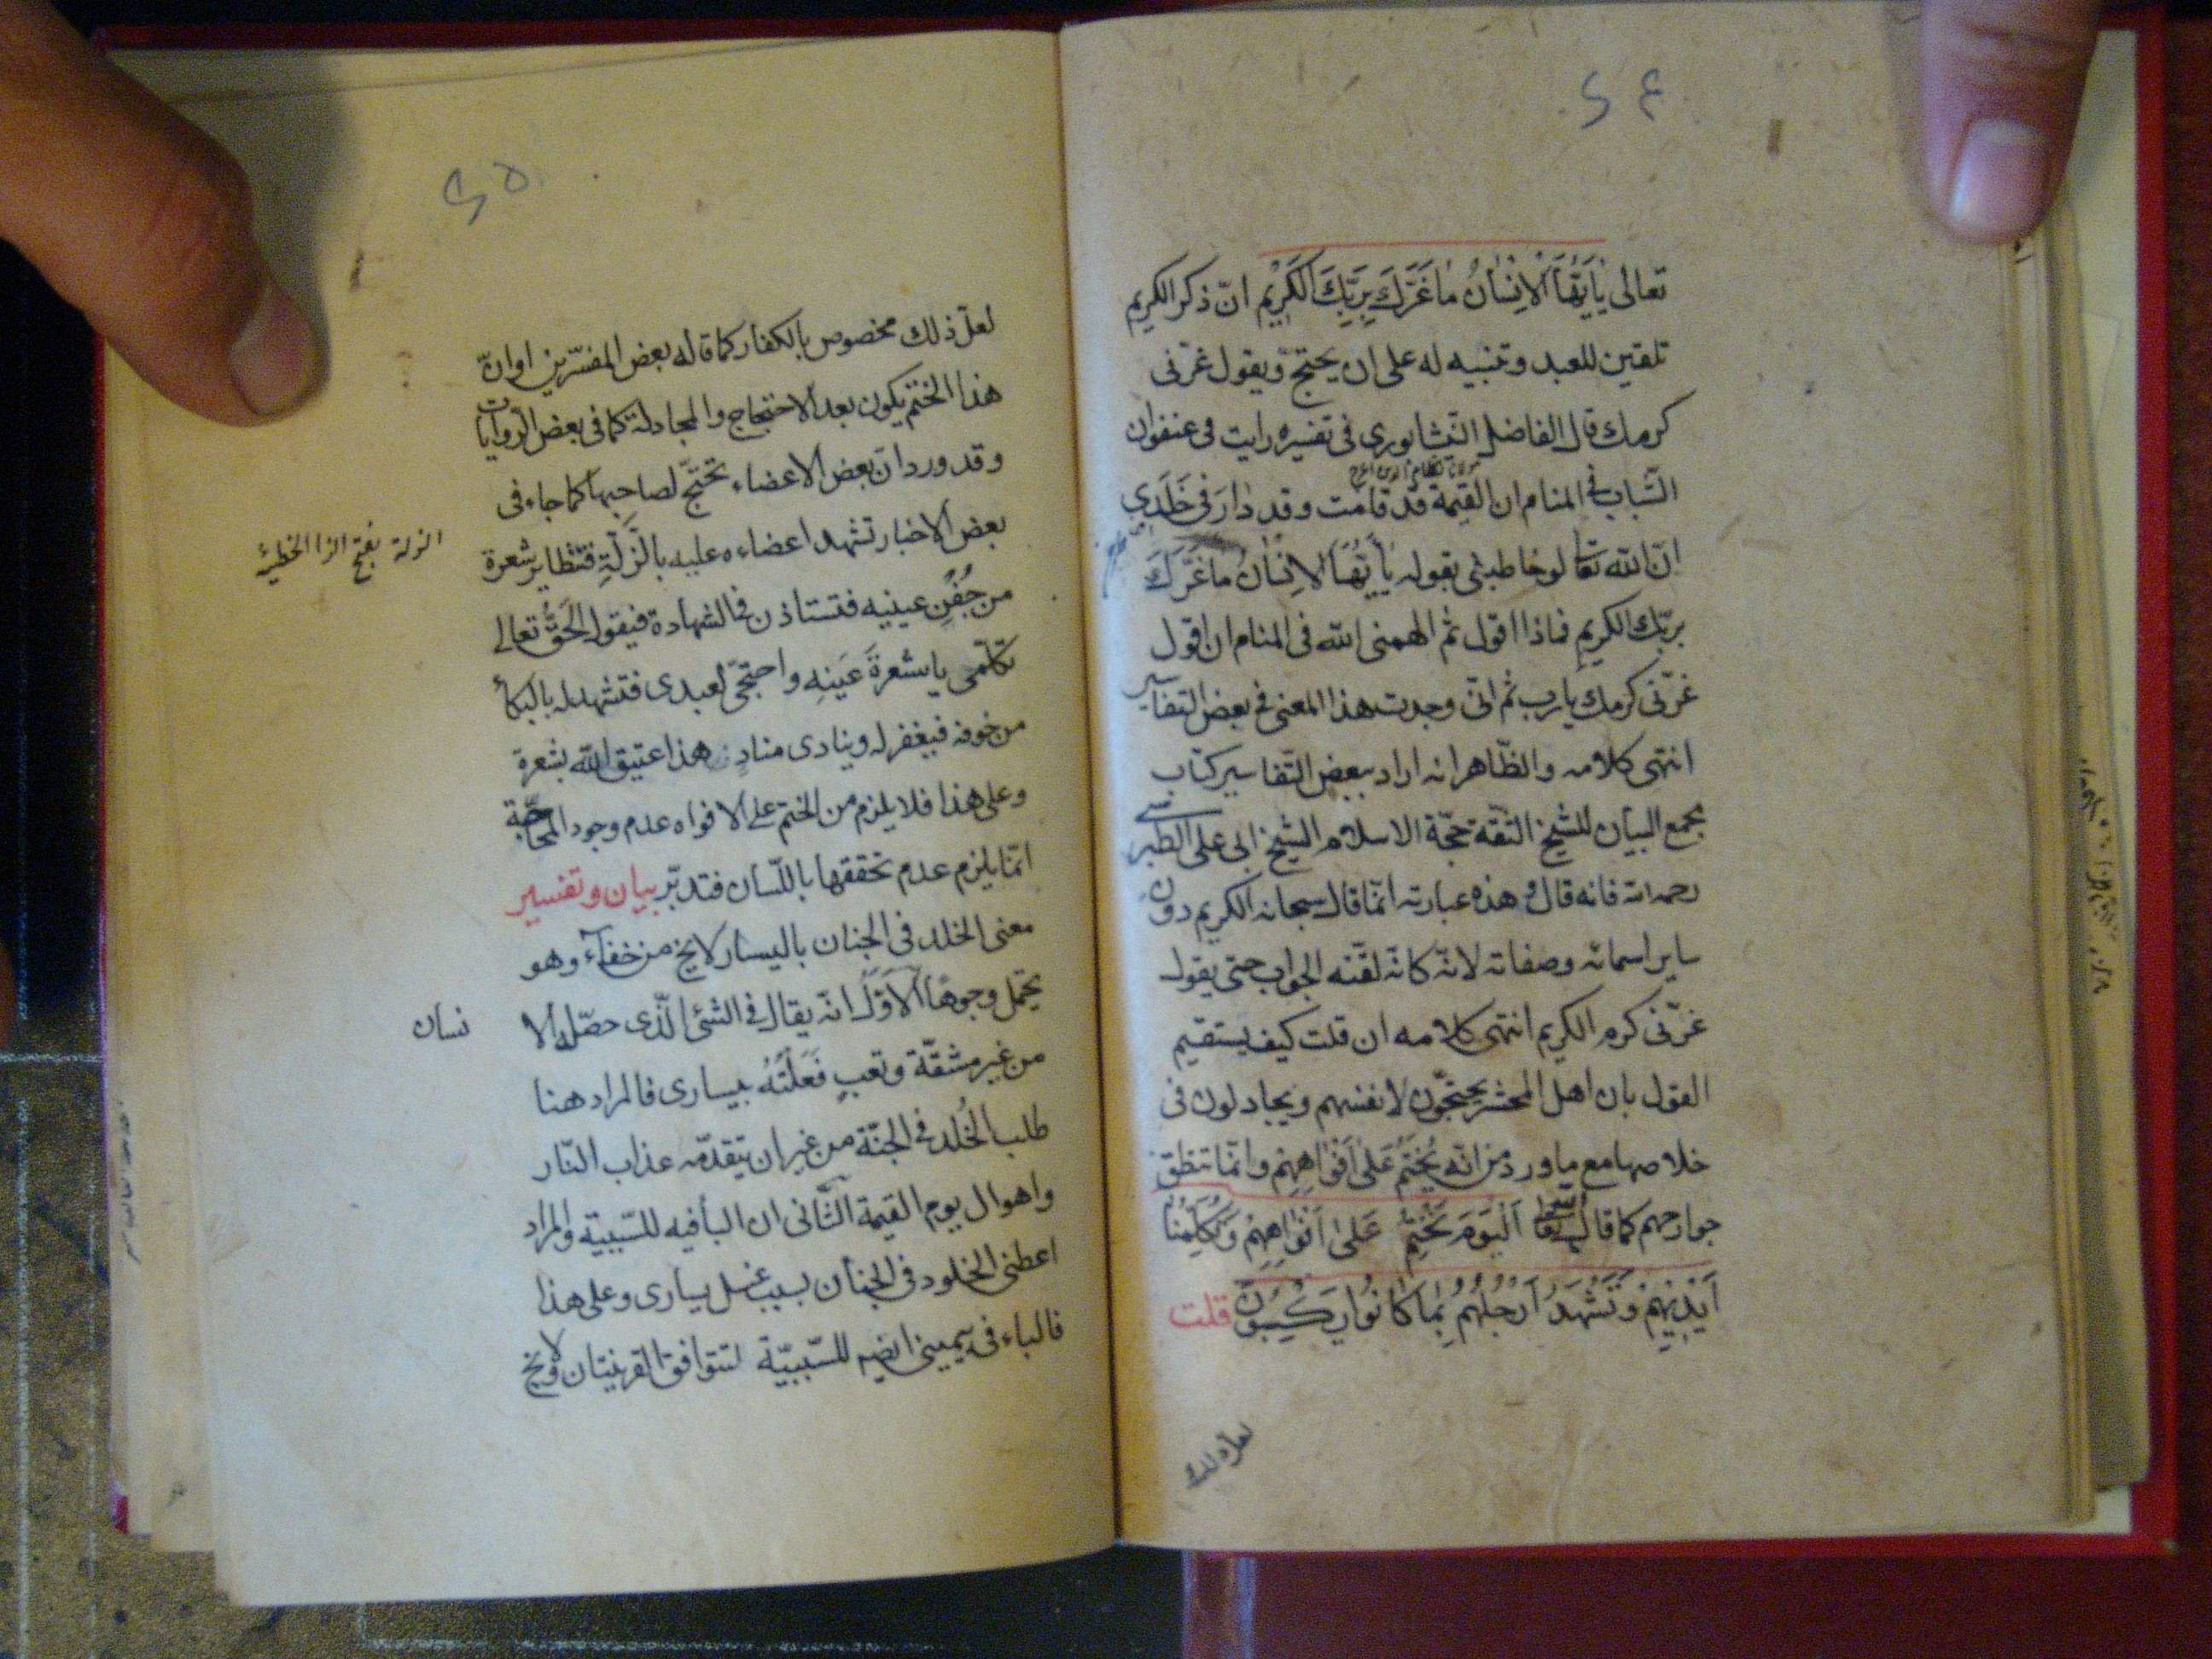 ٢٤
تعالى يَا أَيُّهَا الْاِنْسَانُ مَا غَرَّكَ بِرَبِّكَ الْكَرِيْمِ انّ ذكر الكريم
تلقين للعبد وتنبيه له على ان يحتجّ ويقول غرّنى
كرمك قال الفاضل النيشابورى فى تفسيره رايت فى عنفوان
الشّباب فى المنام ان القيمة قد قامت وقد دار فى خَلَدِي
انّ الله تعا لو خاطبنى بقوله يا أَيُّهَا الاِنْسَانُ ما غرّك
بربّك الكريمِ فماذا اقول ثم الهمنى الله فى المنام ان اقول
غرّنى كرمك يا رب ثم انّى وجدت هذا المعنى فى بعض التفاسير
انتهى كلامه والظّاهر انه اراد ببعض التفاسير كتاب
مجمع البيان للشيخ الثقة حجّة الاسلام الشيخ ابى على الطبرسى
رحمه الله فانه قال هذه عبارته انّما قال سبحانه الكريم دون
ساير اسمائه وصفاته لانّه كانّه لقّنه الجواب حتى يقول
غرّنى كرم الكريم انتهى كلامه ان قلت كيف يستقيم
القول بان اهل المحشر يحتجّون لانفسهم ويجادلون فى
خلاصها مع ما ورد من انّه يُخْتَمُ عَلَى اَفْوَاهِهِمْ وانّما تنطق
جوارحهم كما قال الله تعا اَلْيَوْمَ نَخْتِمُ عَلَى اَفْوَاهِهِمْ وَتُكَلِّمُنَا
اَيْدِيْهِمْ وَتَشْهَدُ اَرْجُلُهُمْ بِمَا كَانُوا يَكْسِبُوْنَ قلت
لعل ذلك
٢٥
لعلّ ذلك مخصوص بالكفار كما قاله بعض المفسّرين او انّ
هذا الختم يكون بعد الاحتجاج والمجادلة كما فى بعض الروايات
وقد ورد انّ بعض الاعضاء تحتجّ لصاحبها كما جاء فى
بعض الاخبار تشهد اعضاءه عليه بالزَّلَّةِ فتتطاير شعرة
الزلة بفتح الزا الخطيئة
من جُفْنِ عينيه فتستاذن فى الشهادة فيقول الحَقُّ تعالى
تكلّمى يا شعرة عَينِه واحتجّى لعبدى فتشهد له بالبكأ
من خوفه فيغفر له وينادى منادٍ هذا عتيق الله بشعرة
وعلى هذا فلا يلزم من الختم على الافواه عدم وجود المحاجّة
انّما يلزم عدم تحققها باللّسان فتدبّر بيان وتفسير
معنى الخلد فى الجنان باليسار لا يخ من خفآء وهو
يحتمل وجوهًا الاوّل انّه يقال فى الشئ الّذى حصّله الا
نسان
من غير مشقّة وتعبٍ فَعَلْتُهُ بيسارى فالمراد هنا
طلب الخُلد فى الجنّة من غير ان يتقدّمه عذاب النّار
واهوال يوم القيمة الثّانى ان البأ فيه للسّببيّة والمراد
اعطنى الخلود فى الجنان بسبب غسل يسارى وعلى هذا
فالباء فى بيمينى ايضا للسّببيّة لتتوافق القرينتان ولا يخ